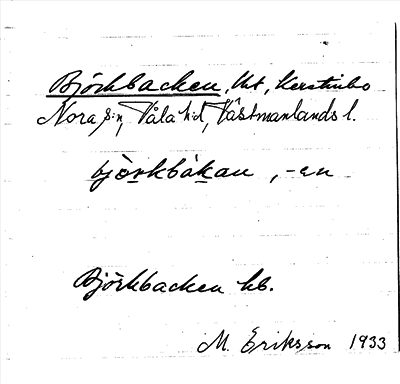 Björkbacken, lht, Kerstinbo
Nora s:n, Våla h:d, Västmanlands l.
bjòrkbákan, -en
Björkbacken hb.
M. Eriksson 1933